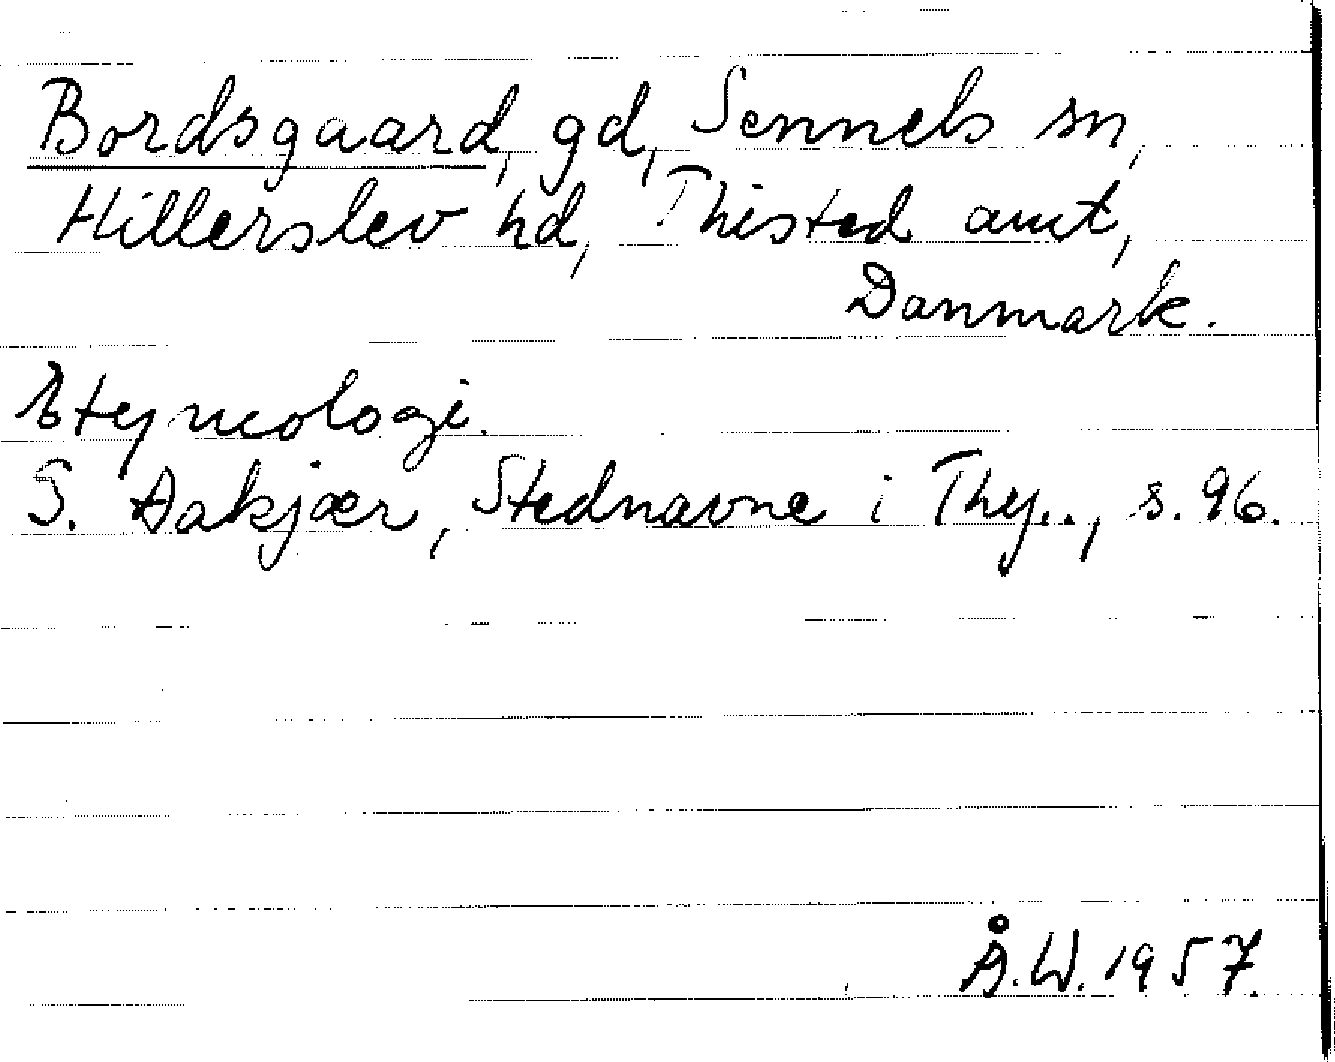 Bordsgaard, gd, Sennels sn,
Hillerslev hd, Thisted amt,
Danmark.
Etymologi.
S. Aakjær, Stednavne i Thy.., s. 96.
Å.W. 1957.